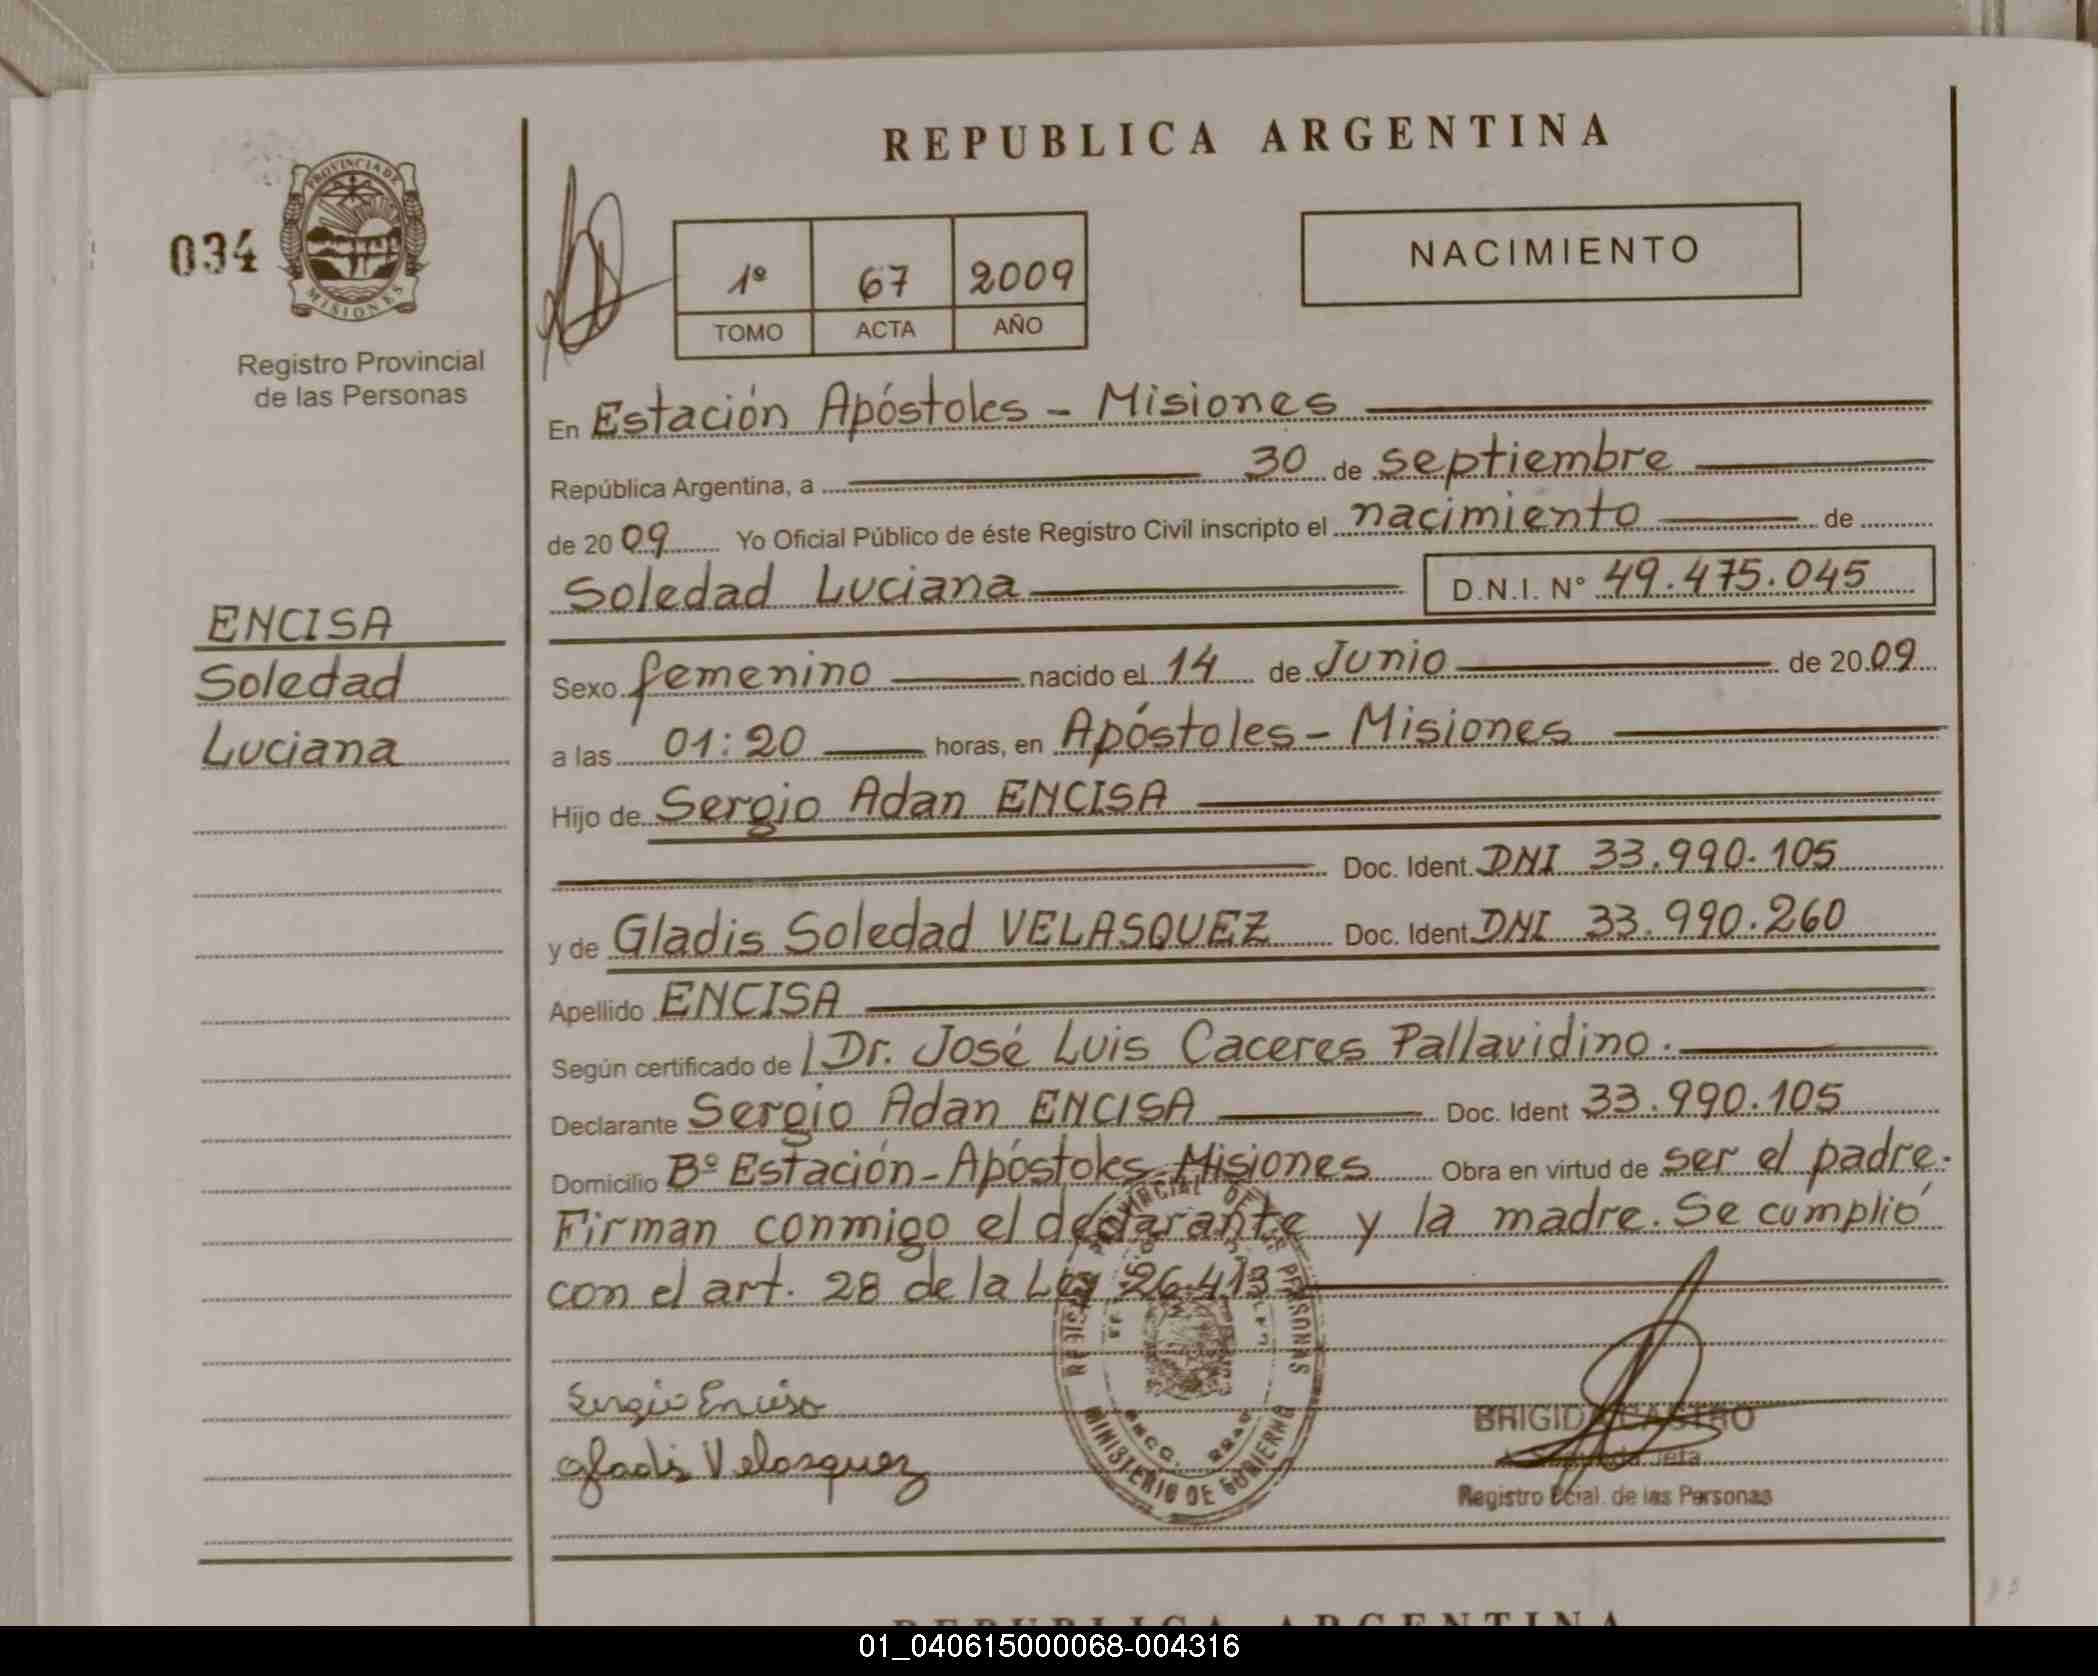 REPUBLICA ARGENTINA
034
PROVINCIA DE
MISIONES
Registro Provincial
de las Personas
1º 67 2009
TOMO ACTA AÑO
NACIMIENTO
En Estación Apóstoles - Misiones
República Argentina, a 30 de septiembre
de 2009 Yo Oficial Público de éste Registro Civil inscripto el nacimiento de
Soledad Luciana D.N.I. Nº 49.475.045
ENCISA
Soledad
Luciana
Sexo femenino nacido el 14 de Junio de 2009
a las 01:20 horas, en Apóstoles - Misiones
Hijo de Sergio Adan ENCISA
Doc. Ident. DNI 33.990.105
y de Gladis Soledad VELASQUEZ Doc. Ident DNI 33.990.260
Apellido ENCISA
Según certificado de Dr. José Luis Caceres Pallavidino.
Declarante Sergio Adan ENCISA Doc. Ident 33.990.105
Domicilio Bº Estación - Apóstoles - Misiones Obra en virtud de ser el padre.
Firman conmigo el declarante y la madre. Se cumplió
con el art. 28 de la Ley 26.413
Sergio Encisa
Gladis Velasquez
MINISTERIO DE GOBIERNO
BRIGIDA CASTRO
Jefa
Registro Pcial. de las Personas
REPUBLICA ARGENTINA
01_040615000068-004316